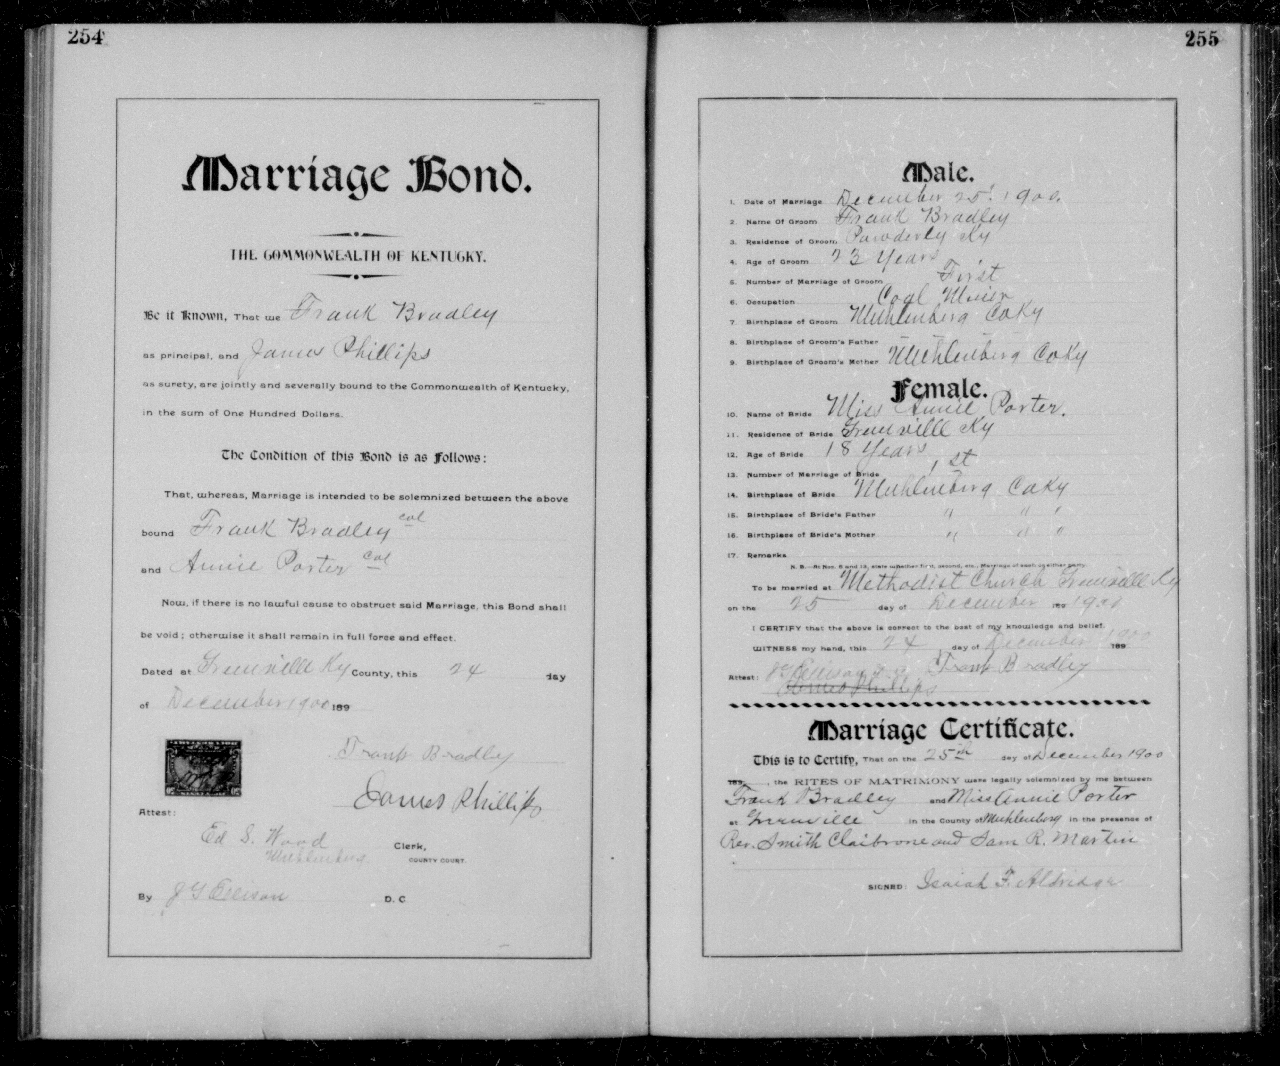 254
Marriage Bond.
THE COMMONWEALTH OF KENTUCKY.
Be it Known, That we Frank Bradley
as principal, and James Phillips
as surety, are jointly and severally bound to the Commonwealth of Kentucky,
in the sum of One Hundred Dollars.
The Condition of this Bond is as Follows:
That, whereas, Marriage is intended to be solemnized between the above
bound Frank Bradley col
and Annie Porter Col
Now, if there is no lawful cause to obstruct said Marriage, this Bond shall
be void; otherwise it shall remain in full force and effect.
Dated at Greenville Ky County, this 24 day
of December 1900 189
Frank Bradley
James Phillips
Attest:
Ed S. Wood Clerk,
Muhlenberg COUNTY COURT.
By J G Ellison D. C
255
Male.
1. Date of Marriage December 25th 1900.
2. Name Of Groom Frank Bradley
3. Residence of Groom Powderly Ky
4. Age of Groom 23 Years
5. Number of Marriage of Groom First
6. Occupation Coal Miner
7. Birthplace of Groom Muhlenberg Co Ky
8. Birthplace of Groom's Father
9. Birthplace of Groom's Mother Muhlenberg Co Ky
Female.
10. Name of Bride Miss Annie Porter.
11. Residence of Bride Greenville Ky
12. Age of Bride 18 Years
13. Number of Marriage of Bride 1st
14. Birthplace of Bride Muhlenberg Co Ky
15. Birthplace of Bride's Father " " "
16. Birthplace of Bride's Mother " " "
17. Remarks
N. B.—At Nos. 5 and 13, state whether first, second, etc., Marriage of each or either party.
To be married at Methodist Church Greenville Ky
on the 25 day of December 189 1900
I CERTIFY that the above is correct to the best of my knowledge and belief.
WITNESS my hand, this 24 day of December 1900 189
Attest: Ellison Frank Bradley
James Phillips
Marriage Certificate.
This is to Certify, That on the 25th day of December 1900
189, the RITES OF MATRIMONY were legally solemnized by me between
Frank Bradley and Miss Annie Porter
at Greenville in the County of Muhlenberg in the presence of
Rev. Smith Claibrone and Sam R. Martin
SIGNED: Isaiah F. Aldridge